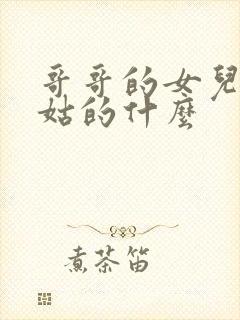 哥哥的女兒
姑的什麼
煮茶笛